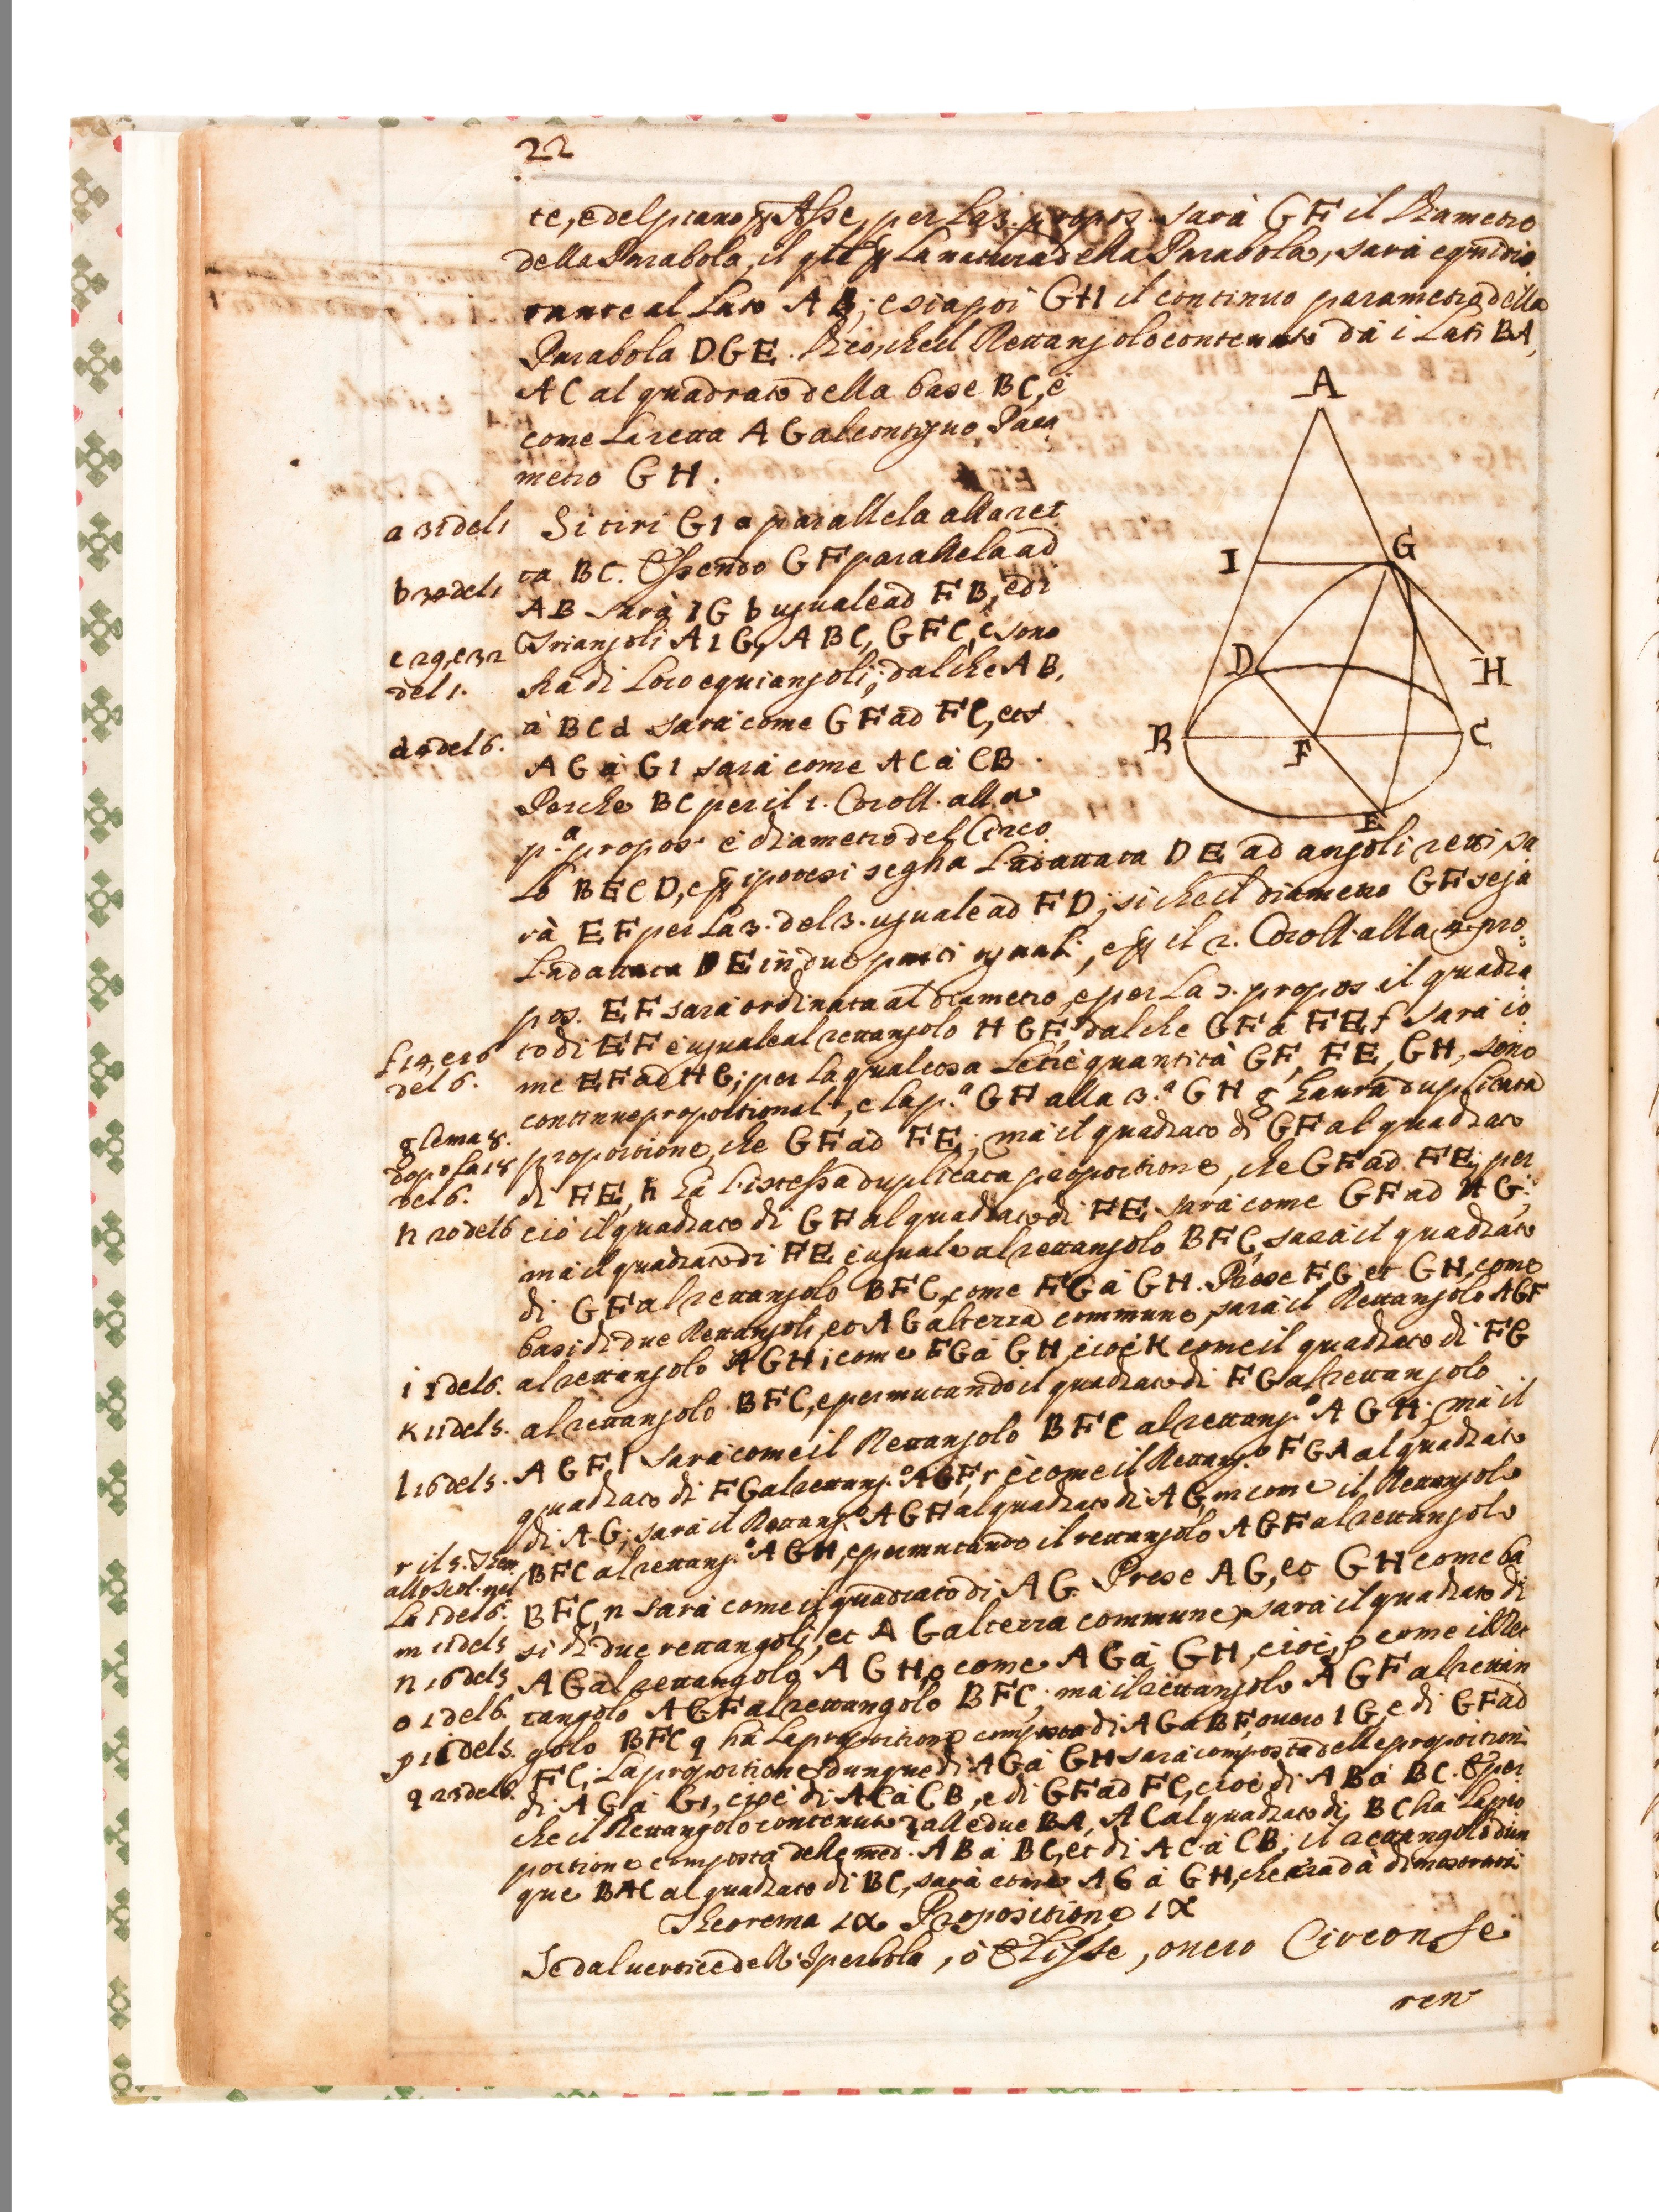 22
te, e del piano per l'Asse, per la 3. propos. sarà GF il Diametro
della Parabola, il qle per la natura della Parabola, sarà equidis
tante al Lato AB; e sia poi GH il continuo parametro della
Parabola DGE. Dico, che il Rettangolo contenuto dà i Lati BA,
AC al quadrato della base BC, è
come la retta AG al contiguo Para
metro GH.
a 31 del 1
Si tiri GI a parallela alla ret
ta BC. Essendo GF parallela ad
b 34 del 1
AB sarà IG b uguale ad FB, ed i
c 29, e 32
del 1.
Triangoli AIG, ABC, GFC, c sono
frà di Loro equiangoli; dal che AB,
d 4 del 6.
à BC d sarà come GF ad FC, et
AG à GI sarà come AC à CB.
Perche BC per il 1. Coroll. alla
p.a propos. è diametro del Circo
lo BECD, e per ipotesi segha l'adattata DE ad angoli retti, sa
rà EF per la 3. del 3. uguale ad FD; si che il diametro GF sega
l'adattata DE in due parti uguali, e per il 2. Coroll. alla 4. pro
pos. EF sarà ordinata al diametro, e per la 3. propos. il quadra
f 14, e 16
del 6.
to di EF è uguale al rettangolo HGF, dal che GF à FE f sarà co
me EF ad HG; per la qual cosa le tre quantità GF, FE, GH, sono
continue proportionali, e la p.a GF alla 3.a GH g haurà duplicata
g lema 8.
dopo la 18
del 6.
proportione, che GF ad FE; mà il quadrato di GF al quadrato
di FE, h hà l'istessa duplicata proportione, che GF ad FE; per
h 20 del 6
ciò il quadrato di GF al quadrato di FE sarà come GF ad HG;
mà il quadrato di FE è uguale al rettangolo BFC, sarà il quadrato
di GF al rettangolo BFC, come FG à GH. Prese FG, et GH, come
basi di due Rettangoli, et AG altezza commune, sarà il Rettangolo AGF
i 1 del 6.
al rettangolo AGH i come FG à GH, cioè k come il quadrato di FG
k 11 del 5.
al rettangolo BFC, e permutando il quadrato di FG al rettangolo
l 16 del 5.
AGF l sarà come il Rettangolo BFC al rettang.o AGH; mà il
quadrato di FG al rettang.o AGF, r è come il Rettang.o FGA al quadrato
di AG; sarà il Rettang.o AGF al quadrato di AG, m come il Rettangolo
r il 5. Theor.
allo scol. nel
la 1 del 6.
BFC al rettang.o AGH, e permutando il rettangolo AGF al rettangolo
BFC, n sarà come il quadrato di AG. Prese AG, et GH come ba
m 11 del 5
si di due rettangoli, et AG altezza commune, sarà il quadrato di
n 16 del 5
AG al rettangolo AGH, o come AG à GH, cioè, p come il Ret
o 1 del 6.
tangolo AGF al rettangolo BFC; mà il rettangolo AGF al rettan
p 11 del 5.
golo BFC q hà la proportione composta di AG à BF, ouero IG, e di GF ad
q 23 del 6.
FC; La proportione dunque di AG à GH sarà composta delle proportioni
di AG à GI, cioè di AC à CB, e di GF ad FC, cioè di AB à BC. E per
che il Rettangolo contenuto dalle due BA, AC al quadrato di BC hà la pro
portione composta delle med. AB à BC, et di AC à CB; il rettangolo dun
que BAC al quadrato di BC, sarà come AG à GH, che era dà dimostrarsi
Theorema IX Propositione IX
Se dal uertice dell'Iperbola, ò Elisse, ouero Circonfe
ren
A
I
G
D
H
B
F
C
E